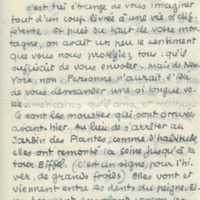 c'est très étrange de vous imaginer
tout d'un coup livrée à une vie si dif-
férente. Et puis du haut de votre mon-
tagne, on avait un peu le sentiment
que vous nous protégiez tous, qu'il
suffisait de vous envoyer. Mais de New
York, non. Personne n'aurait l'idée
de vous demander une si longue
Ce sont les mouettes qui sont arrivées
avant-hier. Au lieu de s'arrêter au
Jardin des Plantes, comme d'habitude,
elles ont remonté la Seine jusqu'à la
tour Eiffel. (C'est un signe, pour l'hi-
ver, de grands froids). Elles vont et
viennent entre les dents du peigne. El-